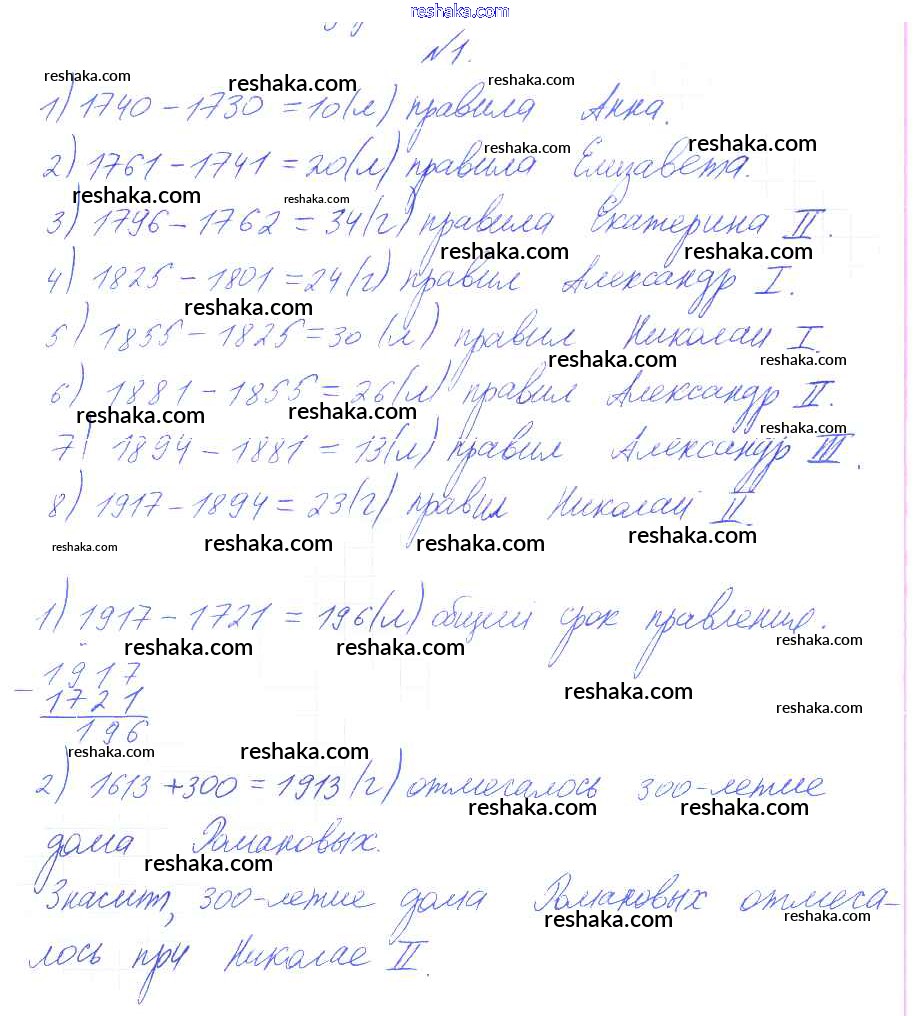 reshaka.com
№1.
reshaka.com reshaka.com reshaka.com
1) 1740 - 1730 = 10 (л) правила Анна.
reshaka.com reshaka.com
2) 1761 - 1741 = 20 (л) правила Елизавета.
reshaka.com reshaka.com
3) 1796 - 1762 = 34 (г) правила Екатерина II.
reshaka.com reshaka.com
4) 1825 - 1801 = 24 (г) правил Александр I.
reshaka.com
5) 1855 - 1825 = 30 (л) правил Николай I.
reshaka.com reshaka.com
6) 1881 - 1855 = 26 (л) правил Александр II.
reshaka.com reshaka.com reshaka.com
7) 1894 - 1881 = 13 (л) правил Александр III.
8) 1917 - 1894 = 23 (г) правил Николай II.
reshaka.com reshaka.com reshaka.com reshaka.com
1) 1917 - 1721 = 196 (л) общий срок правления.
reshaka.com reshaka.com reshaka.com
- 1917
1721
196
reshaka.com reshaka.com
reshaka.com reshaka.com
2) 1613 + 300 = 1913 (г) отмечалось 300-летие
reshaka.com reshaka.com
дома Романовых.
reshaka.com
Значит, 300-летие дома Романовых отмеча-
reshaka.com reshaka.com
лось при Николае II.